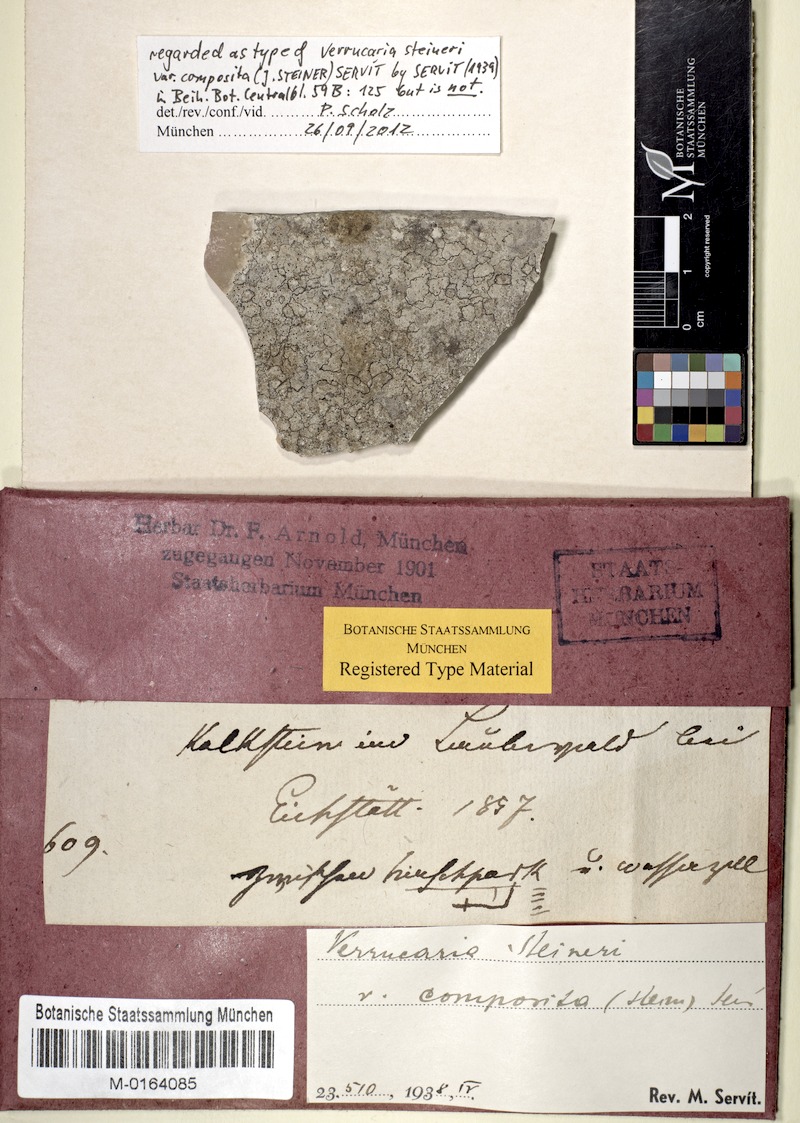 regarded as type of Verrucaria steineri
var. composita (J. STEINER) SERVÍT by SERVÍT (1939)
in Beih. Bot. Centralbl. 59B: 125 but is not.
det./rev./conf./vid. P. Scholz
München 26/09/2012
BOTANISCHE
STAATSSAMMLUNG
MÜNCHEN
copyright reserved
0 1 2
cm
Herbar Dr. F. Arnold, München
zugegangen November 1901
Staatsherbarium München
STAATS-
HERBARIUM
MÜNCHEN
BOTANISCHE STAATSSAMMLUNG
MÜNCHEN
Registered Type Material
Kalkstein im Laubwald bei
Eichstätt. 1857.
609.
zwischen hirschpark u. wasserzell
Verrucaria Steineri
v. composita (Stein)
23.510, 1938, IV.
Rev. M. Servít.
Botanische Staatssammlung München
M-0164085